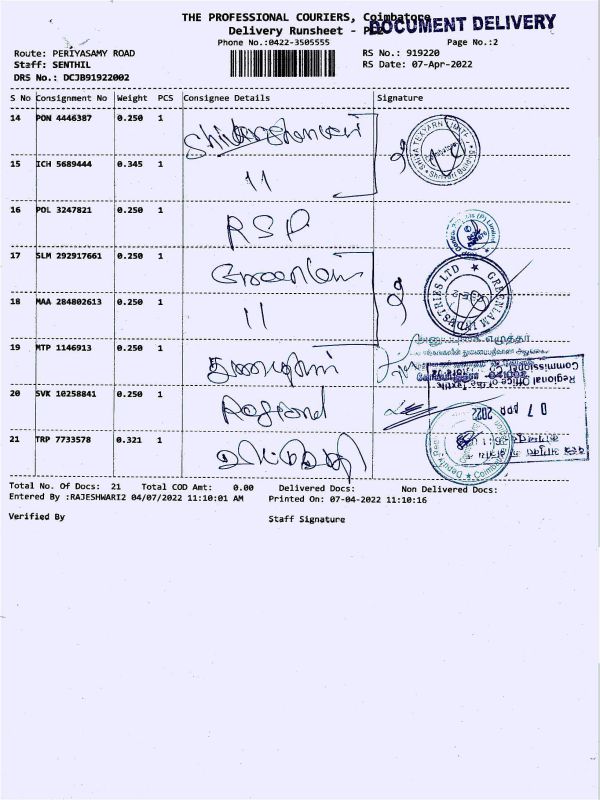 THE PROFESSIONAL COURIERS, Coimbatore
DOCUMENT DELIVERY
Delivery Runsheet -
Phone No.:0422-3505555
Page No.:2
Route: PERIYASAMY ROAD
RS No.: 919220
Staff: SENTHIL
RS Date: 07-Apr-2022
DRS No.: DCJB91922002
S No Consignment No Weight PCS Consignee Details Signature
14 PON 4446387 0.250 1
15 ICH 5689444 0.345 1 11
16 POL 3247821 0.250 1 RSP
17 SLM 292917661 0.250 1 Greenlam
GREENLAM INDUSTRIES LTD
18 MAA 284802613 0.250 1 11
19 MTP 1146913 0.250 1
Regional Office of
Commissioner,
07 APR 2022
20 SVK 10258841 0.250 1 Regional
21 TRP 7733578 0.321 1
Total No. Of Docs: 21 Total COD Amt: 0.00 Delivered Docs: Non Delivered Docs:
Entered By :RAJESHWARI2 04/07/2022 11:10:01 AM Printed On: 07-04-2022 11:10:16
Verified By Staff Signature